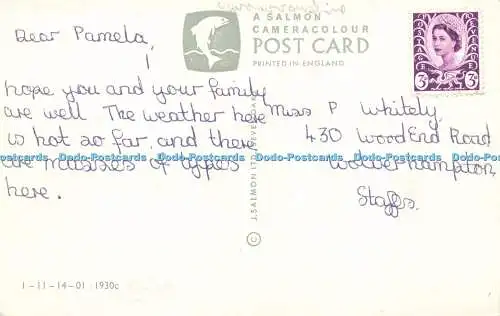 Dear Pamela,
I
hope you and your family
are well The weather here
is hot so far, and there
are masses of types
here.
A SALMON
CAMERACOLOUR
POST CARD
PRINTED IN ENGLAND
3D 3D
Miss P Whitely,
430 Wood End Road
Wolverhampton,
Staffs.
J. SALMON LTD SEVENOAKS
©
1-11-14-01 1930c
Dodo-Postcards Dodo-Postcards Dodo-Postcards Dodo-Postcards Dodo-Postcards Dodo-Postcards Dodo-Postcards